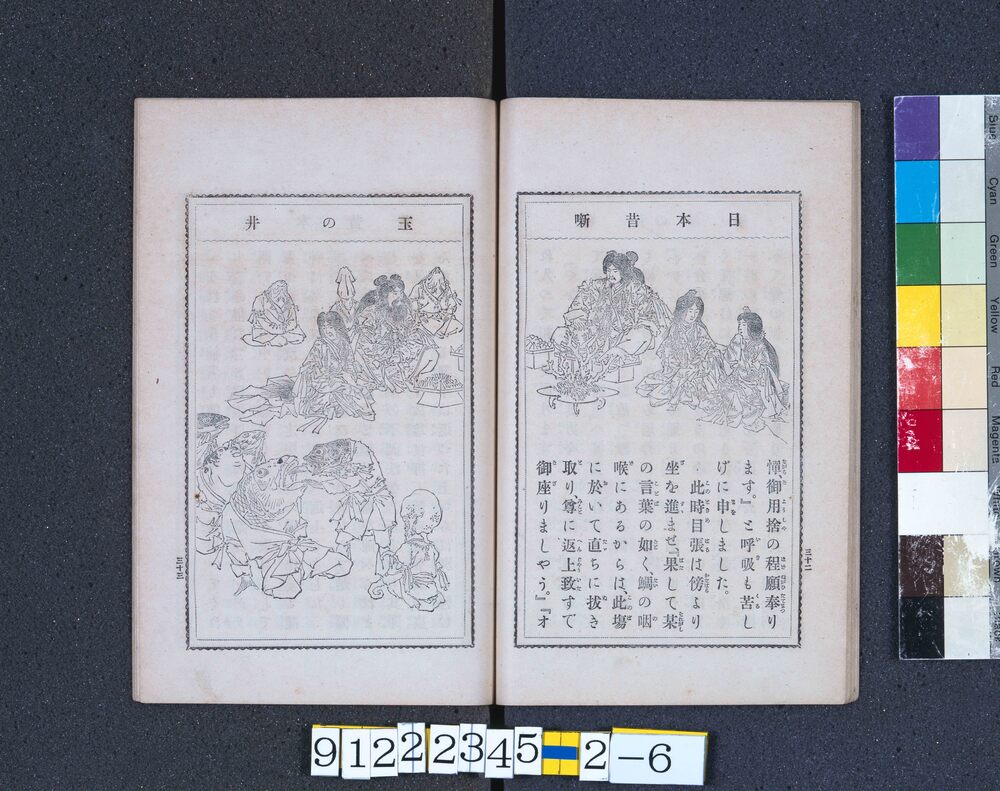 日本昔噺
憚、御用捨の程願奉り
ます。』と呼吸も苦し
げに申しました。
此時目張は傍より
坐を進ませ、『果して某
の言葉の如く、鯛の咽
喉にあるからは、此塲
に於いて直ちに拔き
取り、尊に返上致すで
御座りましやう。』『オ
三十二
玉の井
三十三
Cyan
Green
Yellow
Red
Magenta
9122345 2-6